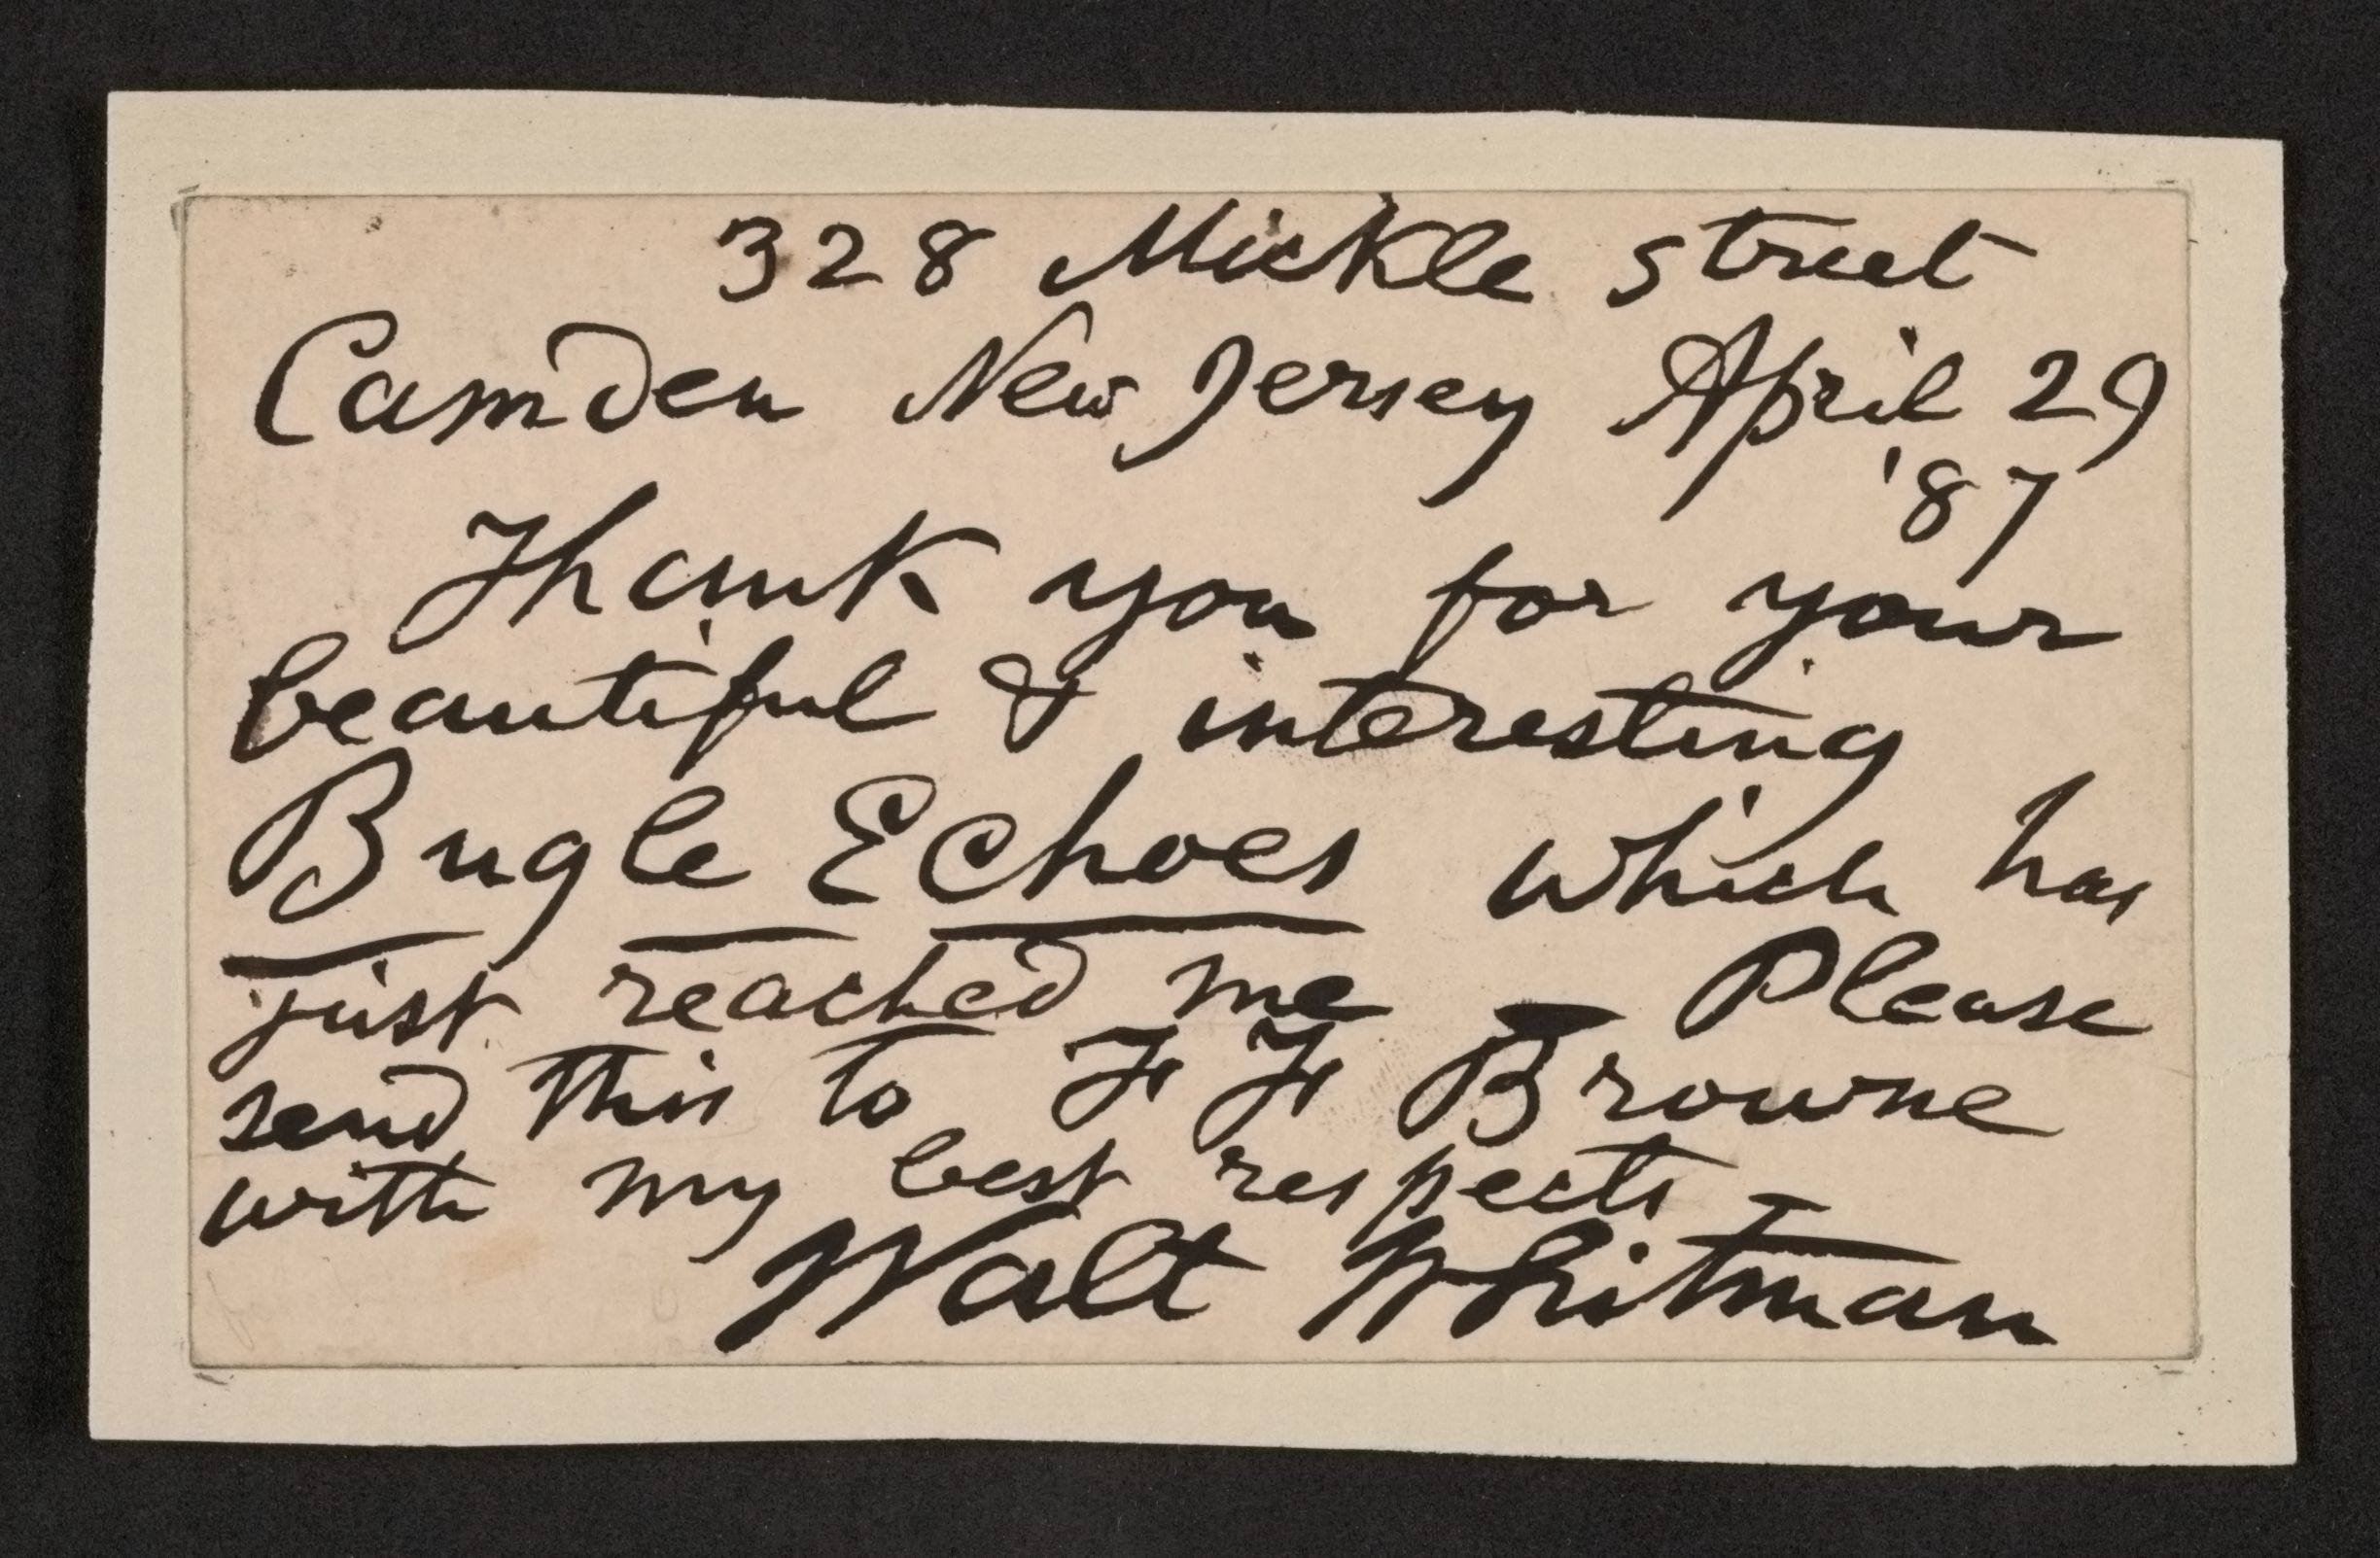 328 Mickle street
Camden New Jersey April 29
'87
Thank you for your
beautiful & interesting
Bugle Echoes which has
just reached me — Please
send this to F F Browne
with my best respects —
Walt Whitman